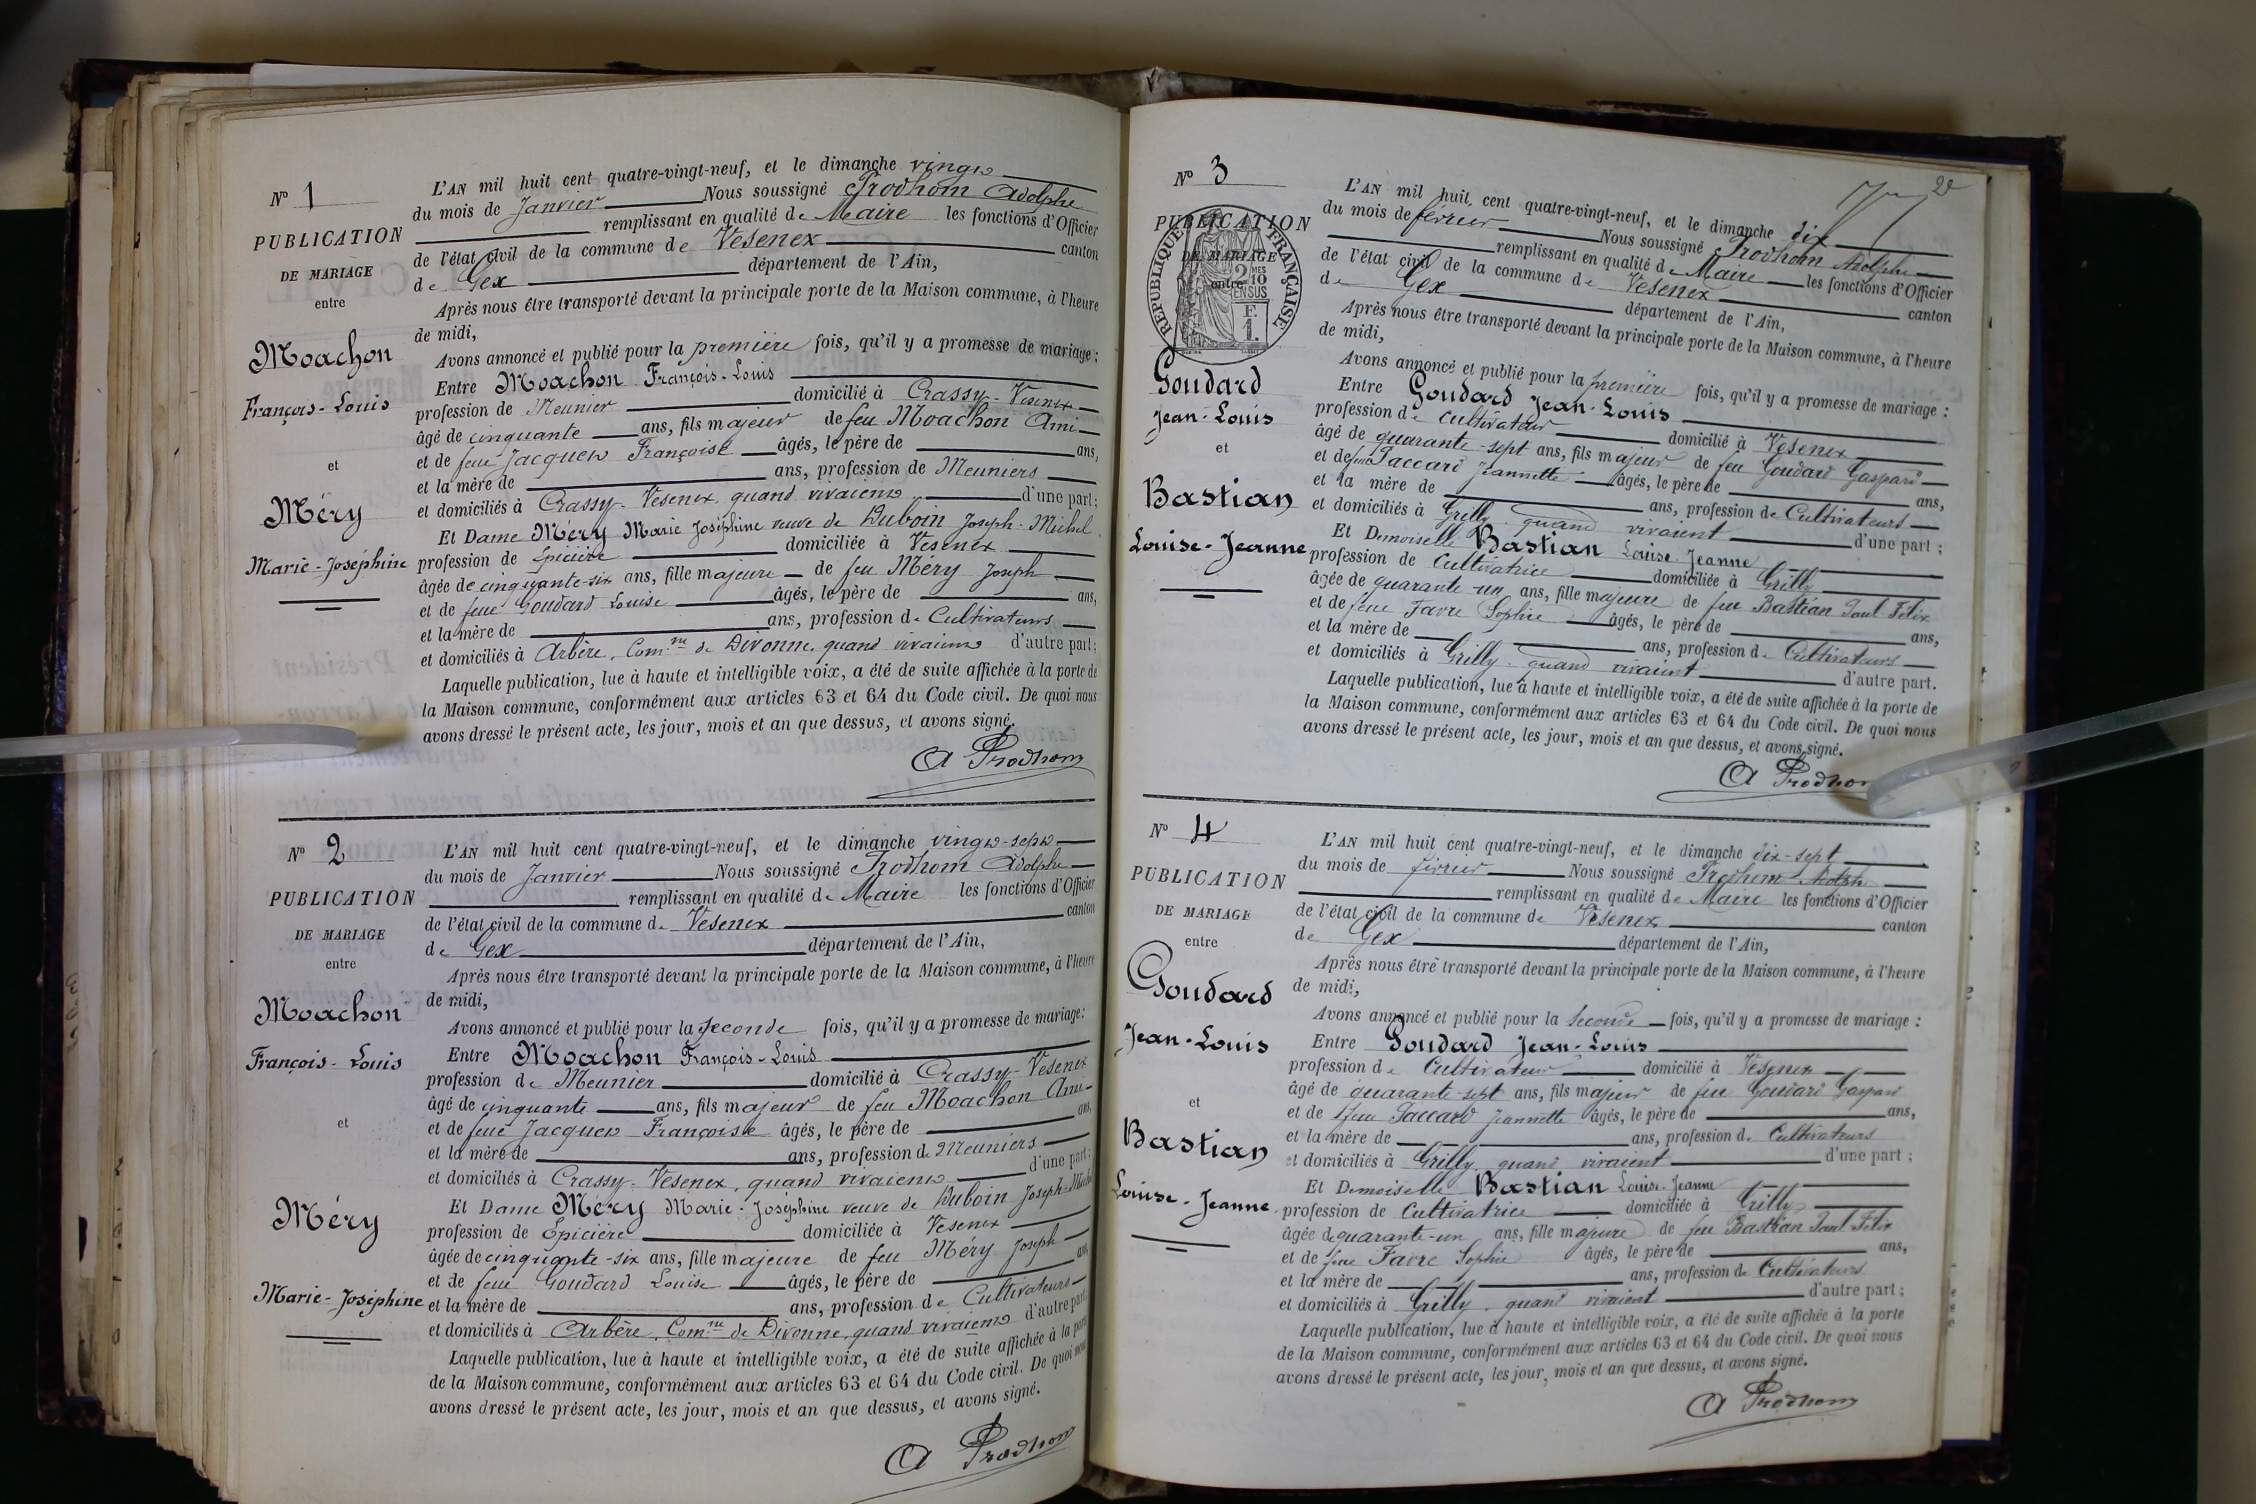 N° 1
PUBLICATION
DE MARIAGE
entre
Moachon
François-Louis
et
Méry
Marie-Joséphine
L'AN mil huit cent quatre-vingt-neuf, et le dimanche vingt
du mois de Janvier Nous soussigné Prodhom Adolphe
remplissant en qualité de Maire les fonctions d'Officier
de l'état civil de la commune de Vesenex canton
de Gex département de l'Ain,
Après nous être transporté devant la principale porte de la Maison commune, à l'heure
de midi,
Avons annoncé et publié pour la première fois, qu'il y a promesse de mariage ;
Entre Moachon François-Louis
profession de Meunier domicilié à Crassy-Vesenex
âgé de cinquante ans, fils majeur de feu Moachon Ami
et de feue Jacquet Françoise âgés, le père de ans,
et la mère de ans, profession de Meuniers
et domiciliés à Crassy-Vesenex, quand vivaient d'une part ;
Et Dame Méry Marie Joséphine veuve de Duboin Joseph-Michel
profession de Epicière domiciliée à Vesenex
âgée de cinquante-six ans, fille majeure de feu Méry Joseph
et de feue Goudard Louise âgés, le père de ans,
et la mère de ans, profession de Cultivateurs
et domiciliés à Arbère, Com.ne de Divonne, quand vivaient d'autre part ;
Laquelle publication, lue à haute et intelligible voix, a été de suite affichée à la porte de
la Maison commune, conformément aux articles 63 et 64 du Code civil. De quoi nous
avons dressé le présent acte, les jour, mois et an que dessus, et avons signé.
A Prodhom
N° 2
PUBLICATION
DE MARIAGE
entre
Moachon
François-Louis
et
Méry
Marie-Joséphine
L'AN mil huit cent quatre-vingt-neuf, et le dimanche vingt-sept
du mois de Janvier Nous soussigné Prodhom Adolphe
remplissant en qualité de Maire les fonctions d'Officier
de l'état civil de la commune de Vesenex canton
de Gex département de l'Ain,
Après nous être transporté devant la principale porte de la Maison commune, à l'heure
de midi,
Avons annoncé et publié pour la seconde fois, qu'il y a promesse de mariage :
Entre Moachon François-Louis
profession de Meunier domicilié à Crassy-Vesenex
âgé de cinquante ans, fils majeur de feu Moachon Ami
et de feue Jacquet Françoise âgés, le père de ans,
et la mère de ans, profession de Meuniers
et domiciliés à Crassy-Vesenex, quand vivaient d'une part ;
Et Dame Méry Marie-Joséphine veuve de Duboin Joseph-Michel
profession de Epicière domiciliée à Vesenex
âgée de cinquante-six ans, fille majeure de feu Méry Joseph
et de feue Goudard Louise âgés, le père de ans,
et la mère de ans, profession de Cultivateurs
et domiciliés à Arbère, Com.ne de Divonne, quand vivaient d'autre part.
Laquelle publication, lue à haute et intelligible voix, a été de suite affichée à la porte
de la Maison commune, conformément aux articles 63 et 64 du Code civil. De quoi nous
avons dressé le présent acte, les jour, mois et an que dessus, et avons signé.
A Prodhom
2e
N° 3
PUBLICATION
DE MARIAGE
entre
RÉPUBLIQUE FRANÇAISE
2/10
EN SUS
F. 1.
Goudard
Jean-Louis
et
Bastian
Louise-Jeanne
L'AN mil huit cent quatre-vingt-neuf, et le dimanche dix
du mois de février Nous soussigné Prodhom Adolphe
remplissant en qualité de Maire les fonctions d'Officier
de l'état civil de la commune de Vesenex canton
de Gex département de l'Ain,
Après nous être transporté devant la principale porte de la Maison commune, à l'heure
de midi,
Avons annoncé et publié pour la première fois, qu'il y a promesse de mariage :
Entre Goudard Jean-Louis
profession de Cultivateur domicilié à Vesenex
âgé de quarante-sept ans, fils majeur de feu Goudard Gaspard
et de feue Paccard Jeannette âgés, le père de ans,
et la mère de ans, profession de Cultivateurs
et domiciliés à Grilly, quand vivaient d'une part ;
Et Demoiselle Bastian Louise Jeanne
profession de Cultivatrice domiciliée à Grilly
âgée de quarante-un ans, fille majeure de feu Bastian Paul Félix
et de feue Favre Sophie âgés, le père de ans,
et la mère de ans, profession de Cultivateurs
et domiciliés à Grilly, quand vivaient d'autre part.
Laquelle publication, lue à haute et intelligible voix, a été de suite affichée à la porte de
la Maison commune, conformément aux articles 63 et 64 du Code civil. De quoi nous
avons dressé le présent acte, les jour, mois et an que dessus, et avons signé.
A Prodhom
N° 4
PUBLICATION
DE MARIAGE
entre
Goudard
Jean-Louis
et
Bastian
Louise-Jeanne
L'AN mil huit cent quatre-vingt-neuf, et le dimanche dix-sept
du mois de février Nous soussigné Prodhom Adolphe
remplissant en qualité de Maire les fonctions d'Officier
de l'état civil de la commune de Vesenex canton
de Gex département de l'Ain,
Après nous être transporté devant la principale porte de la Maison commune, à l'heure
de midi,
Avons annoncé et publié pour la seconde fois, qu'il y a promesse de mariage :
Entre Goudard Jean-Louis
profession de Cultivateur domicilié à Vesenex
âgé de quarante-sept ans, fils majeur de feu Goudard Gaspard
et de feue Paccard Jeannette âgés, le père de ans,
et la mère de ans, profession de Cultivateurs
et domiciliés à Grilly, quand vivaient d'une part ;
Et Demoiselle Bastian Louise-Jeanne
profession de Cultivatrice domiciliée à Grilly
âgée de quarante-un ans, fille majeure de feu Bastian Paul Félix
et de feue Favre Sophie âgés, le père de ans,
et la mère de ans, profession de Cultivateurs
et domiciliés à Grilly, quand vivaient d'autre part ;
Laquelle publication, lue à haute et intelligible voix, a été de suite affichée à la porte
de la Maison commune, conformément aux articles 63 et 64 du Code civil. De quoi nous
avons dressé le présent acte, les jour, mois et an que dessus, et avons signé.
A Prodhom